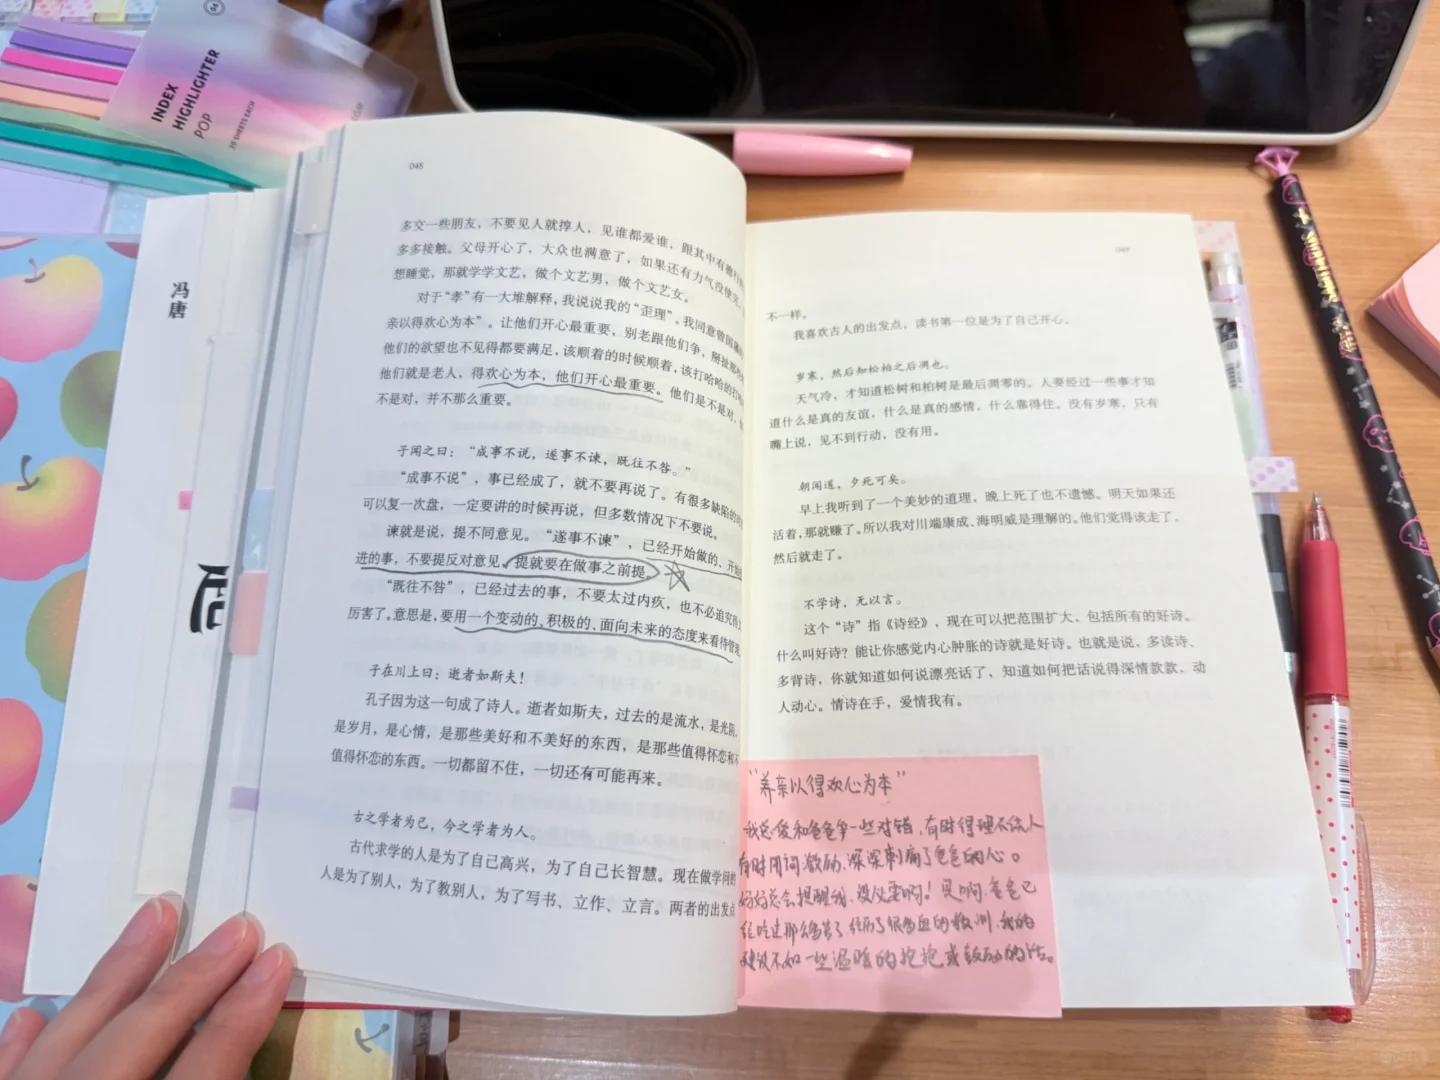 INDEX
HIGHLIGHTER
POP
20 SHEETS EACH
冯唐
048
多交一些朋友，不要见人就撑人，见谁都爱谁，跟其中有德行
多多接触。父母开心了，大众也满意了，如果还有力气没使完，
想睡觉，那就学学文艺，做个文艺男，做个文艺女。
对于“孝”有一大堆解释，我说说我的“歪理”。我同意曾国藩
亲以得欢心为本”。让他们开心最重要，别老跟他们争，掰扯那些
他们的欲望也不见得都要满足，该顺着的时候顺着，该打哈哈的打
他们就是老人，得欢心为本，他们开心最重要。他们是不是对，
不是对，并不那么重要。
子闻之曰：“成事不说，遂事不谏，既往不咎。”
“成事不说”，事已经成了，就不要再说了。有很多缺陷的
可以复一次盘，一定要讲的时候再说，但多数情况下不要说。
谏就是说，提不同意见。“遂事不谏”，已经开始做的、开始
进的事，不要提反对意见，提就要在做事之前提。
“既往不咎”，已经过去的事，不要太过内疚，也不必追究
厉害了。意思是，要用一个变动的、积极的、面向未来的态度来看待
子在川上曰：逝者如斯夫！
孔子因为这一句成了诗人。逝者如斯夫，过去的是流水，是光阴，
是岁月，是心情，是那些美好和不美好的东西，是那些值得怀恋和不
值得怀恋的东西。一切都留不住，一切还有可能再来。
古之学者为己，今之学者为人。
古代求学的人是为了自己高兴，为了自己长智慧。现在做学问的
人是为了别人，为了教别人，为了写书、立作、立言。两者的出发点
049
不一样。
我喜欢古人的出发点，读书第一位是为了自己开心。
岁寒，然后知松柏之后凋也。
天气冷，才知道松树和柏树是最后凋零的。人要经过一些事才知
道什么是真的友谊，什么是真的感情，什么靠得住。没有岁寒，只有
嘴上说，见不到行动，没有用。
朝闻道，夕死可矣。
早上我听到了一个美妙的道理，晚上死了也不遗憾。明天如果还
活着，那就赚了。所以我对川端康成、海明威是理解的。他们觉得该走了，
然后就走了。
不学诗，无以言。
这个“诗”指《诗经》，现在可以把范围扩大，包括所有的好诗。
什么叫好诗？能让你感觉内心肿胀的诗就是好诗。也就是说，多读诗、
多背诗，你就知道如何说漂亮话了，知道如何把话说得深情款款，动
人动心。情诗在手，爱情我有。
“养亲以得欢心为本”
我总爱和爸爸争一些对错，有时得理不饶人
有时用词激励，深深刺痛了爸爸的心。
好好总会提醒我，没必要啊！是啊，爸爸已
经吃过那么多苦了，经历了很多血的教训，我的
建议不如一些温暖的抱抱或鼓励的话。